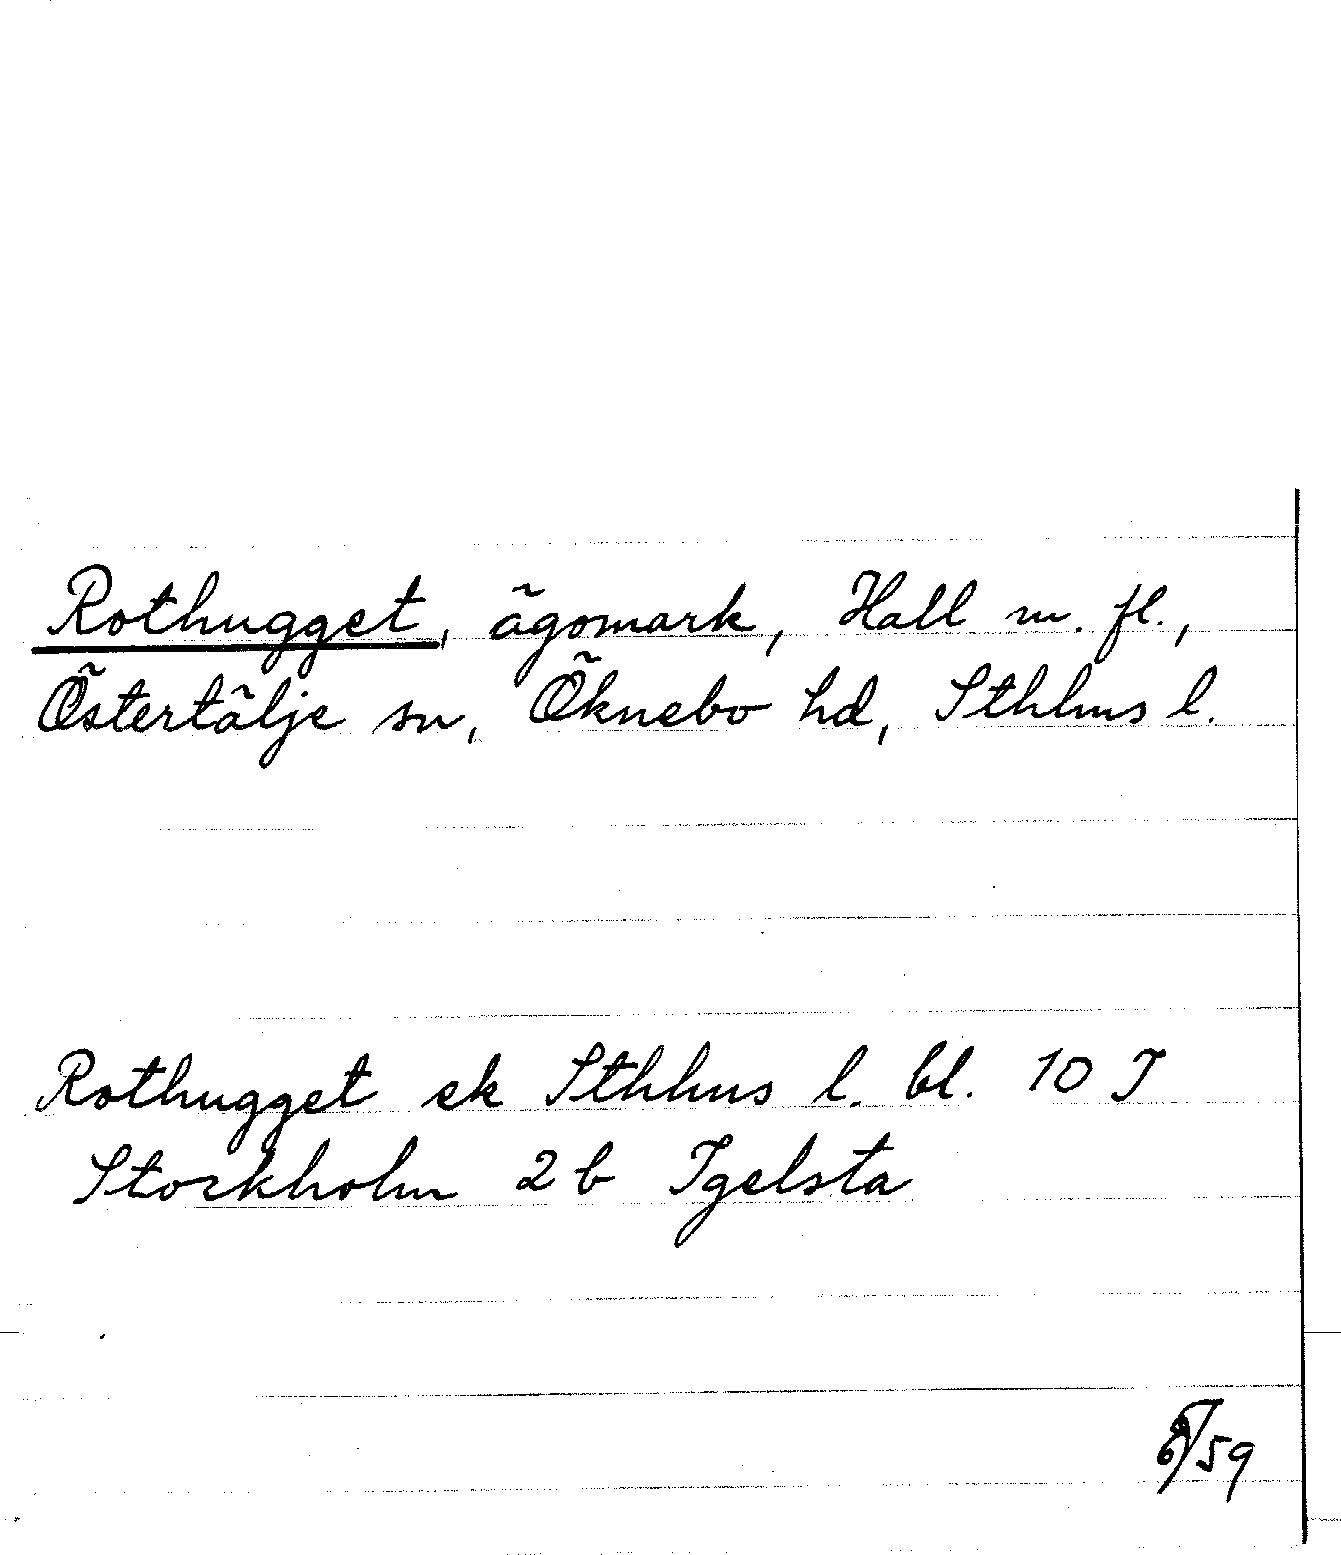 Rothugget, ägomark, Hall m. fl.,
Östertälje sn, Öknebo hd, Sthlms l.
Rothugget ek Sthlms l. bl. 10 I
Stockholm 2b Igelsta
/59